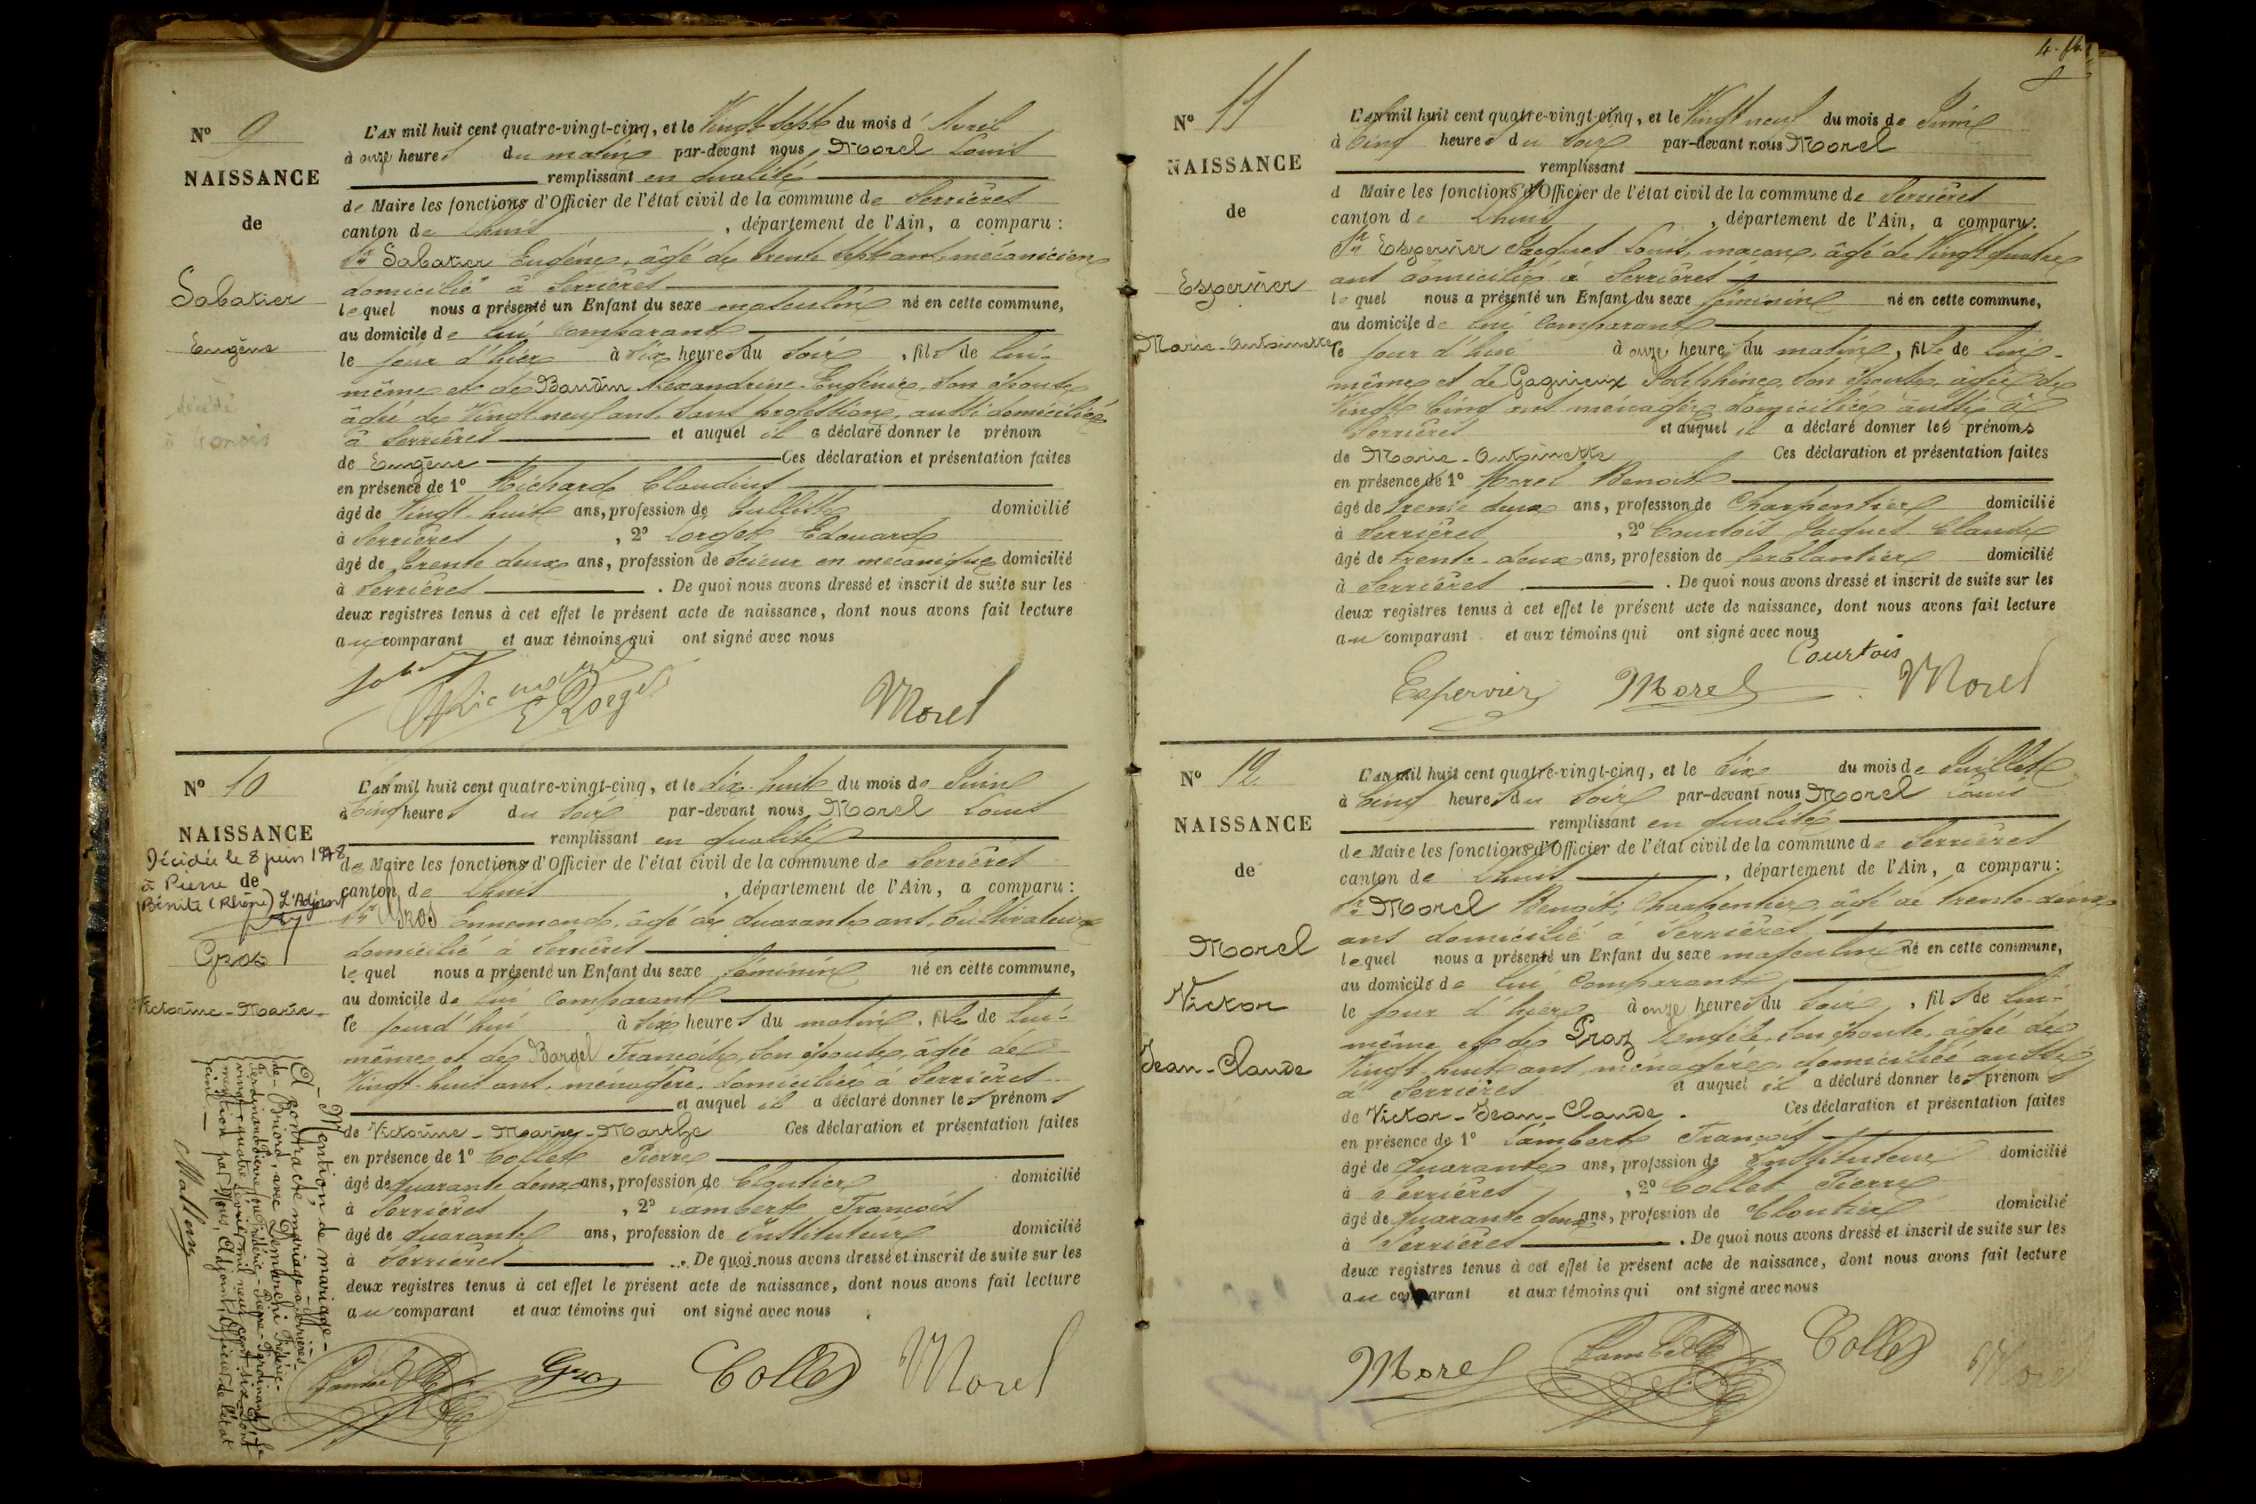 Nº 9
NAISSANCE
de
Sabatier
Eugène
décédé
à
L'AN mil huit cent quatre-vingt-cinq, et le Vingt sept du mois d' Avril
à onze heures du matin par-devant nous Morel Louis
remplissant en qualité
de Maire les fonctions d'Officier de l'état civil de la commune de Serrières
canton de Lhuis, département de l'Ain, a comparu :
Sr Sabatier Eugène, âgé de trente sept ans, mécanicien
domicilié à Serrières
lequel nous a présenté un Enfant du sexe masculin né en cette commune,
au domicile de lui comparant
le jour d'hier à dix heures du soir, fils de lui-
même et de Baudin Alexandrine Eugénie, son épouse
âgée de Vingt neuf ans, sans profession, aussi domiciliée
à Serrières et auquel il a déclaré donner le prénom
de Eugène Ces déclaration et présentation faites
en présence de 1º Richard Claudius
âgé de Vingt-huit ans, profession de domicilié
à Serrières, 2º Lorget Edouard
âgé de trente deux ans, profession de Scieur en mécanique domicilié
à Serrières. De quoi nous avons dressé et inscrit de suite sur les
deux registres tenus à cet effet le présent acte de naissance, dont nous avons fait lecture
au comparant et aux témoins qui ont signé avec nous
Morel
Nº 10
NAISSANCE
de
Décidée le 8 juin 19 8
à Pierre
Bénite (Rhône) L'Adjoint
Gros
Victorine-Marie-
L'AN mil huit cent quatre-vingt-cinq, et le dix-huit du mois de Juin
à Cinq heures du soir par-devant nous Morel Louis
remplissant en qualité
de Maire les fonctions d'Officier de l'état civil de la commune de Serrières
canton de Lhuis, département de l'Ain, a comparu :
Sr Gros Ennemond, âgé de quarante ans, Cultivateur
domicilié à Serrières
lequel nous a présenté un Enfant du sexe féminin né en cette commune,
au domicile de lui comparant
le jourd'hui à six heures du matin, fille de lui-
même et de Bargel Françoise, son épouse, âgée de
Vingt-huit ans, ménagère, domiciliée à Serrières
et auquel il a déclaré donner les prénoms
de Victorine-Marie-Marthe Ces déclaration et présentation faites
en présence de 1º Collet Pierre
âgé de quarante deux ans, profession de Cloutier domicilié
à Serrières, 2º Lambert François
âgé de quarante ans, profession de Instituteur domicilié
à Serrières. De quoi nous avons dressé et inscrit de suite sur les
deux registres tenus à cet effet le présent acte de naissance, dont nous avons fait lecture
au comparant et aux témoins qui ont signé avec nous
Gros Collet Morel
- Mention de mariage -
A contracté mariage à Serrières-
de-Briord, avec Demenchi Frédéric-
vingt-quatre février mil neuf cent six dont
mention par Nous, Adjoint, Officier de l'état
civil
Nº 11
NAISSANCE
de
Espervier
Marie-Antoinette
L'AN mil huit cent quatre-vingt-cinq, et le Vingt neuf du mois de Juin
à Cinq heures du soir par-devant nous Morel
remplissant
d Maire les fonctions d'Officier de l'état civil de la commune de Serrières
canton de Lhuis, département de l'Ain, a comparu :
Sr Espervier Jacques Louis, maçon, âgé de Vingt quatre
ans domicilié à Serrières
lequel nous a présenté un Enfant du sexe féminin né en cette commune,
au domicile de lui comparant
le jour d'hui à onze heures du matin, fille de lui-
même et de Gagnieux Joséphine, son épouse, âgée de
Vingt Cinq ans ménagère domiciliée aussi à
Serrières et auquel il a déclaré donner les prénoms
de Marie-Antoinette Ces déclaration et présentation faites
en présence de 1º Morel Benoit
âgé de trente deux ans, profession de Charpentier domicilié
à Serrières, 2º Courtois Jacques Claude
âgé de trente-deux ans, profession de ferblantier domicilié
à Serrières. De quoi nous avons dressé et inscrit de suite sur les
deux registres tenus à cet effet le présent acte de naissance, dont nous avons fait lecture
au comparant et aux témoins qui ont signé avec nous
Courtois
Espervier Morel Morel
Nº 12
NAISSANCE
de
Morel
Victor
Jean-Claude
L'AN mil huit cent quatre-vingt-cinq, et le Six du mois de Juillet
à Cinq heures du soir par-devant nous Morel Louis
remplissant en qualité
de Maire les fonctions d'Officier de l'état civil de la commune de Serrières
canton de Lhuis, département de l'Ain, a comparu :
Sr Morel Benoit, Charpentier, âgé de trente-deux
ans domicilié à Serrières
lequel nous a présenté un Enfant du sexe masculin né en cette commune,
au domicile de lui comparant
le jour d'hier à onze heures du soir, fils de lui-
même et de Praz, son épouse, âgée de
Vingt huit ans, ménagère, domiciliée aussi
à Serrières et auquel il a déclaré donner les prénoms
de Victor-Jean-Claude. Ces déclaration et présentation faites
en présence de 1º Lambert François
âgé de quarante ans, profession de Instituteur domicilié
à Serrières, 2º Collet Pierre
âgé de quarante deux ans, profession de Cloutier domicilié
à Serrières. De quoi nous avons dressé et inscrit de suite sur les
deux registres tenus à cet effet le présent acte de naissance, dont nous avons fait lecture
au comparant et aux témoins qui ont signé avec nous
Morel Lambert Collet Morel